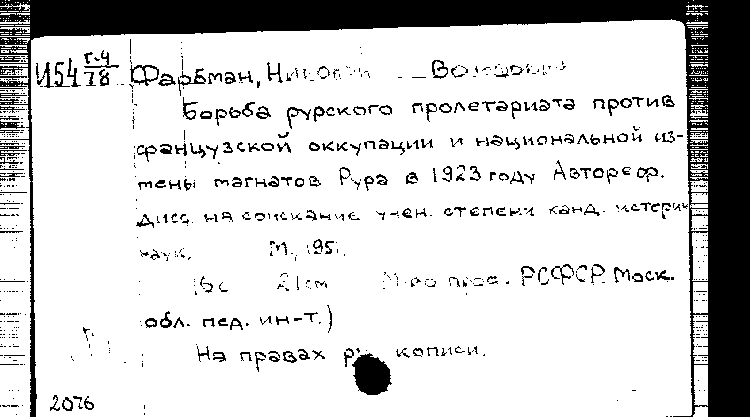 И54 г-4/78 Фарбман, Николай
Борьба рурского пролетариата против
французской оккупации и национальной из-
мены магнатов Рура в 1923 году Автореф.
дисс. на соискание учен. степени канд. историч
наук. М., 1951.
16 с 21 см М-во прос. РСФСР. Моск.
обл. пед. ин-т.)
На правах рукописи.
2076